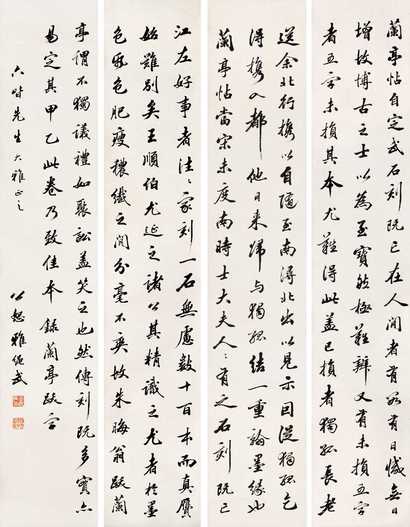 蘭亭帖自定武石刻既亡在人間者有數有日減無日
增故博古之士以為至寶然極難辨又有未損五字
者五字未損其本尤難得此蓋已損者獨孤長老
送余北行携以自隨至南潯北出以見示因從獨孤乞
得携入都他日来歸與獨孤結一重翰墨緣也
蘭亭帖當宋未度南時士大夫人人有之石刻既亡
江左好事者往往家刻一石無慮數十百本而真贗
始難別矣王順伯尤延之諸公其精識之尤者於墨
色紙色肥瘦穠纖之間分毫不爽故朱晦翁跋蘭
亭謂不獨議禮如聚訟蓋笑之也然傳刻既多實亦
易定其甲乙此卷乃致佳本 錄蘭亭跋言
六皆先生大雅正之
公恕雅